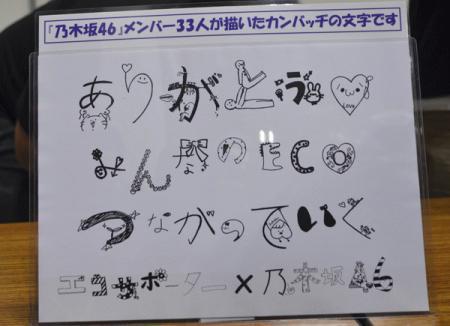 『乃木坂46』メンバー33人が描いたカンバッチの文字です
ありがとう
Love
みんなのECO
つながっていく
エコサポーター×乃木坂46